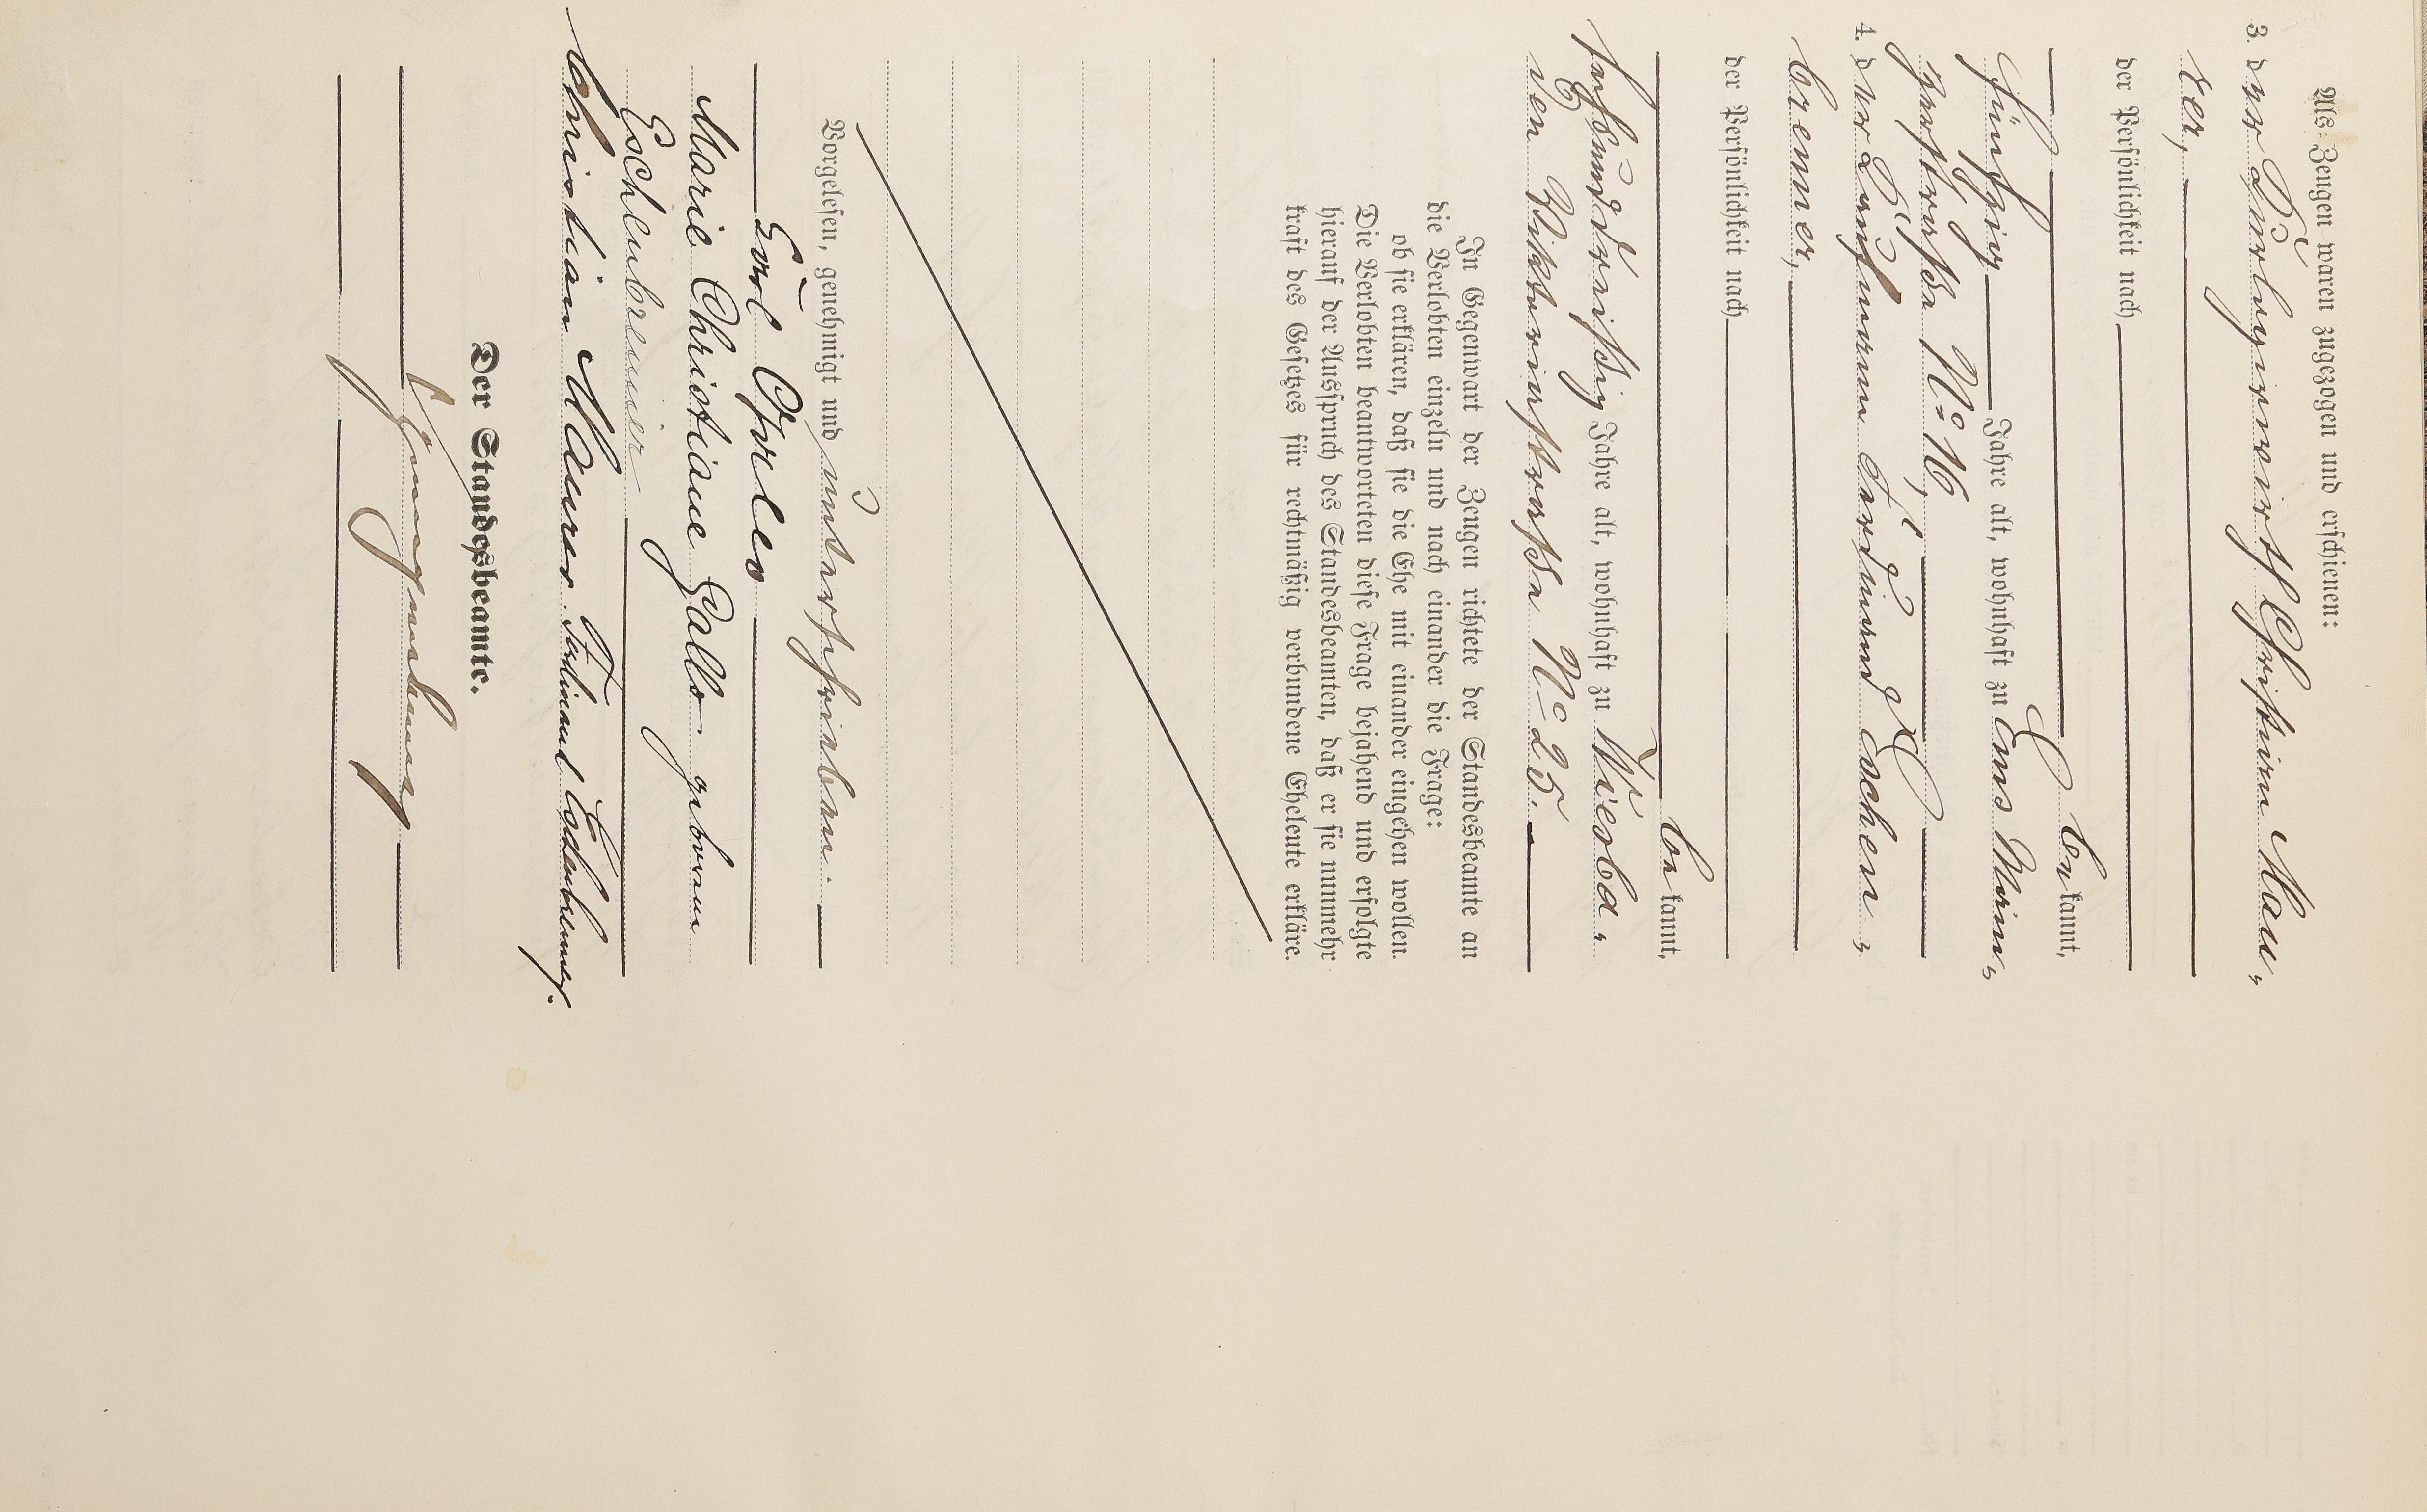 Als Zeugen waren zugezogen und erschienen:
3. der Christian Mau-
rer,
der Persönlichkeit nach
be kannt,
fünfzig Jahre alt, wohnhaft zu Ems Wein-
No 16,
4. der Kaufmann Ferdinand Eschen-
bremer,
der Persönlichkeit nach
be kannt,
sechsunddreißig Jahre alt, wohnhaft zu Wiesba-
den Viktoriastraße No 25.
In Gegenwart der Zeugen richtete der Standesbeamte an
die Verlobten einzeln und nach einander die Frage:
ob sie erklären, daß sie die Ehe mit einander eingehen wollen.
Die Verlobten beantworteten diese Frage bejahend und erfolgte
hierauf der Ausspruch des Standesbeamten, daß er sie nunmehr
kraft des Gesetzes für rechtmäßig verbundene Eheleute erkläre.
Vorgelesen, genehmigt und unterschrieben.
Marie Christiane geborene
Eschenbremer
Christian Maurer. Ferdinand Eschenbremer.
Der Standesbeamte.